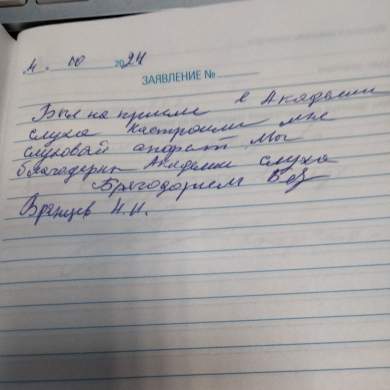 11. 10 2024
ЗАЯВЛЕНИЕ №
Был на приеме в Академии
слуха настроили мне
слуховой апарат Мы
благодарны Академии слуха
Благодарием Вас
Н.И.